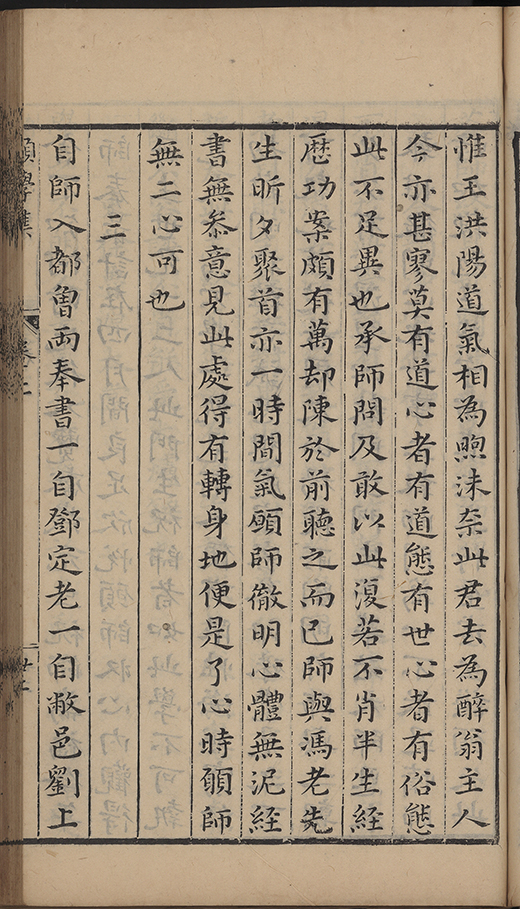 惟王洪陽道氣相為煦沫柰此君去為醉翁主人
今亦甚寥莫有道心者有道態有世心者有俗態
此不足異也承師問及敢以此復若不肖半生経
歷功案頗有萬却陳於前聽之而已師與馮老先
生昕夕聚首亦一時間氣願師徹明心體無泥経
書無叅意見此處得有轉身地便是了心時願師
無二心可也
三
自師入都曾兩奉書一自鄧定老一自敝邑劉上
願學集
卷二